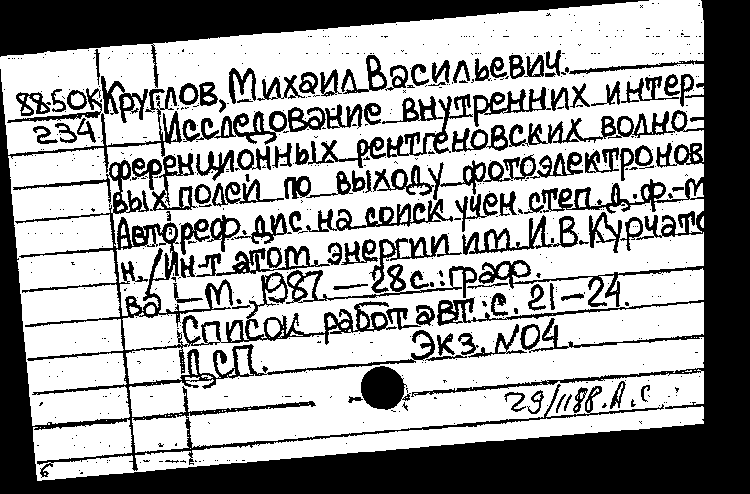 88.5ОК Круглов, Михаил Васильевич.
234 Исследование внутренних интер-
ференционных рентгеновских волно-
вых полей по выходу фотоэлектронов
Автореф. дис. на соиск. учен. степ. д. ф.-м
н. / Ин-т атом. энергии им. И. В. Курчато
ва. — М., 1987. — 28 с.: граф.
Список работ авт.: с. 21—24.
ДСП. Экз. №04.
29/1188. А. С
б